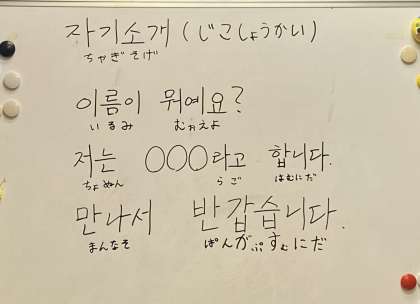 자기소개 (じこしょうかい)
ちゃぎそげ
이름이 뭐예요?
いるみ むぉえよ
저는 OOO라고 합니다.
ちょぬん らご はむにだ
만나서 반갑습니다.
まんなそ ぱんがぷすむにだ